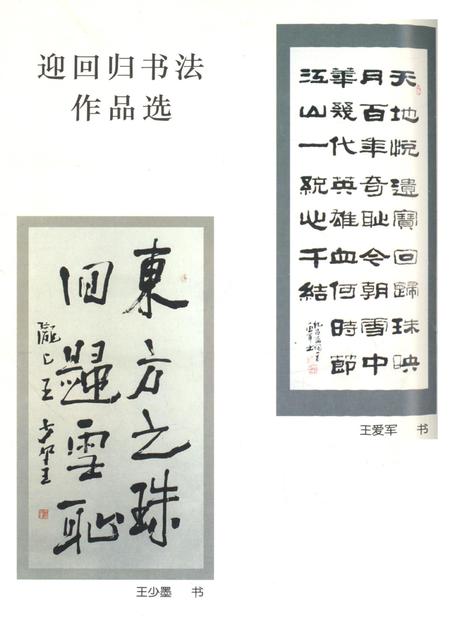 迎回归书法
作品选
天地悦遺寶回歸珠映
月百年奇耻今朝雪中
華幾代英雄血何時節
江山一統心千結
王爱军 书
東方之珠
回歸雪恥
王少墨 书